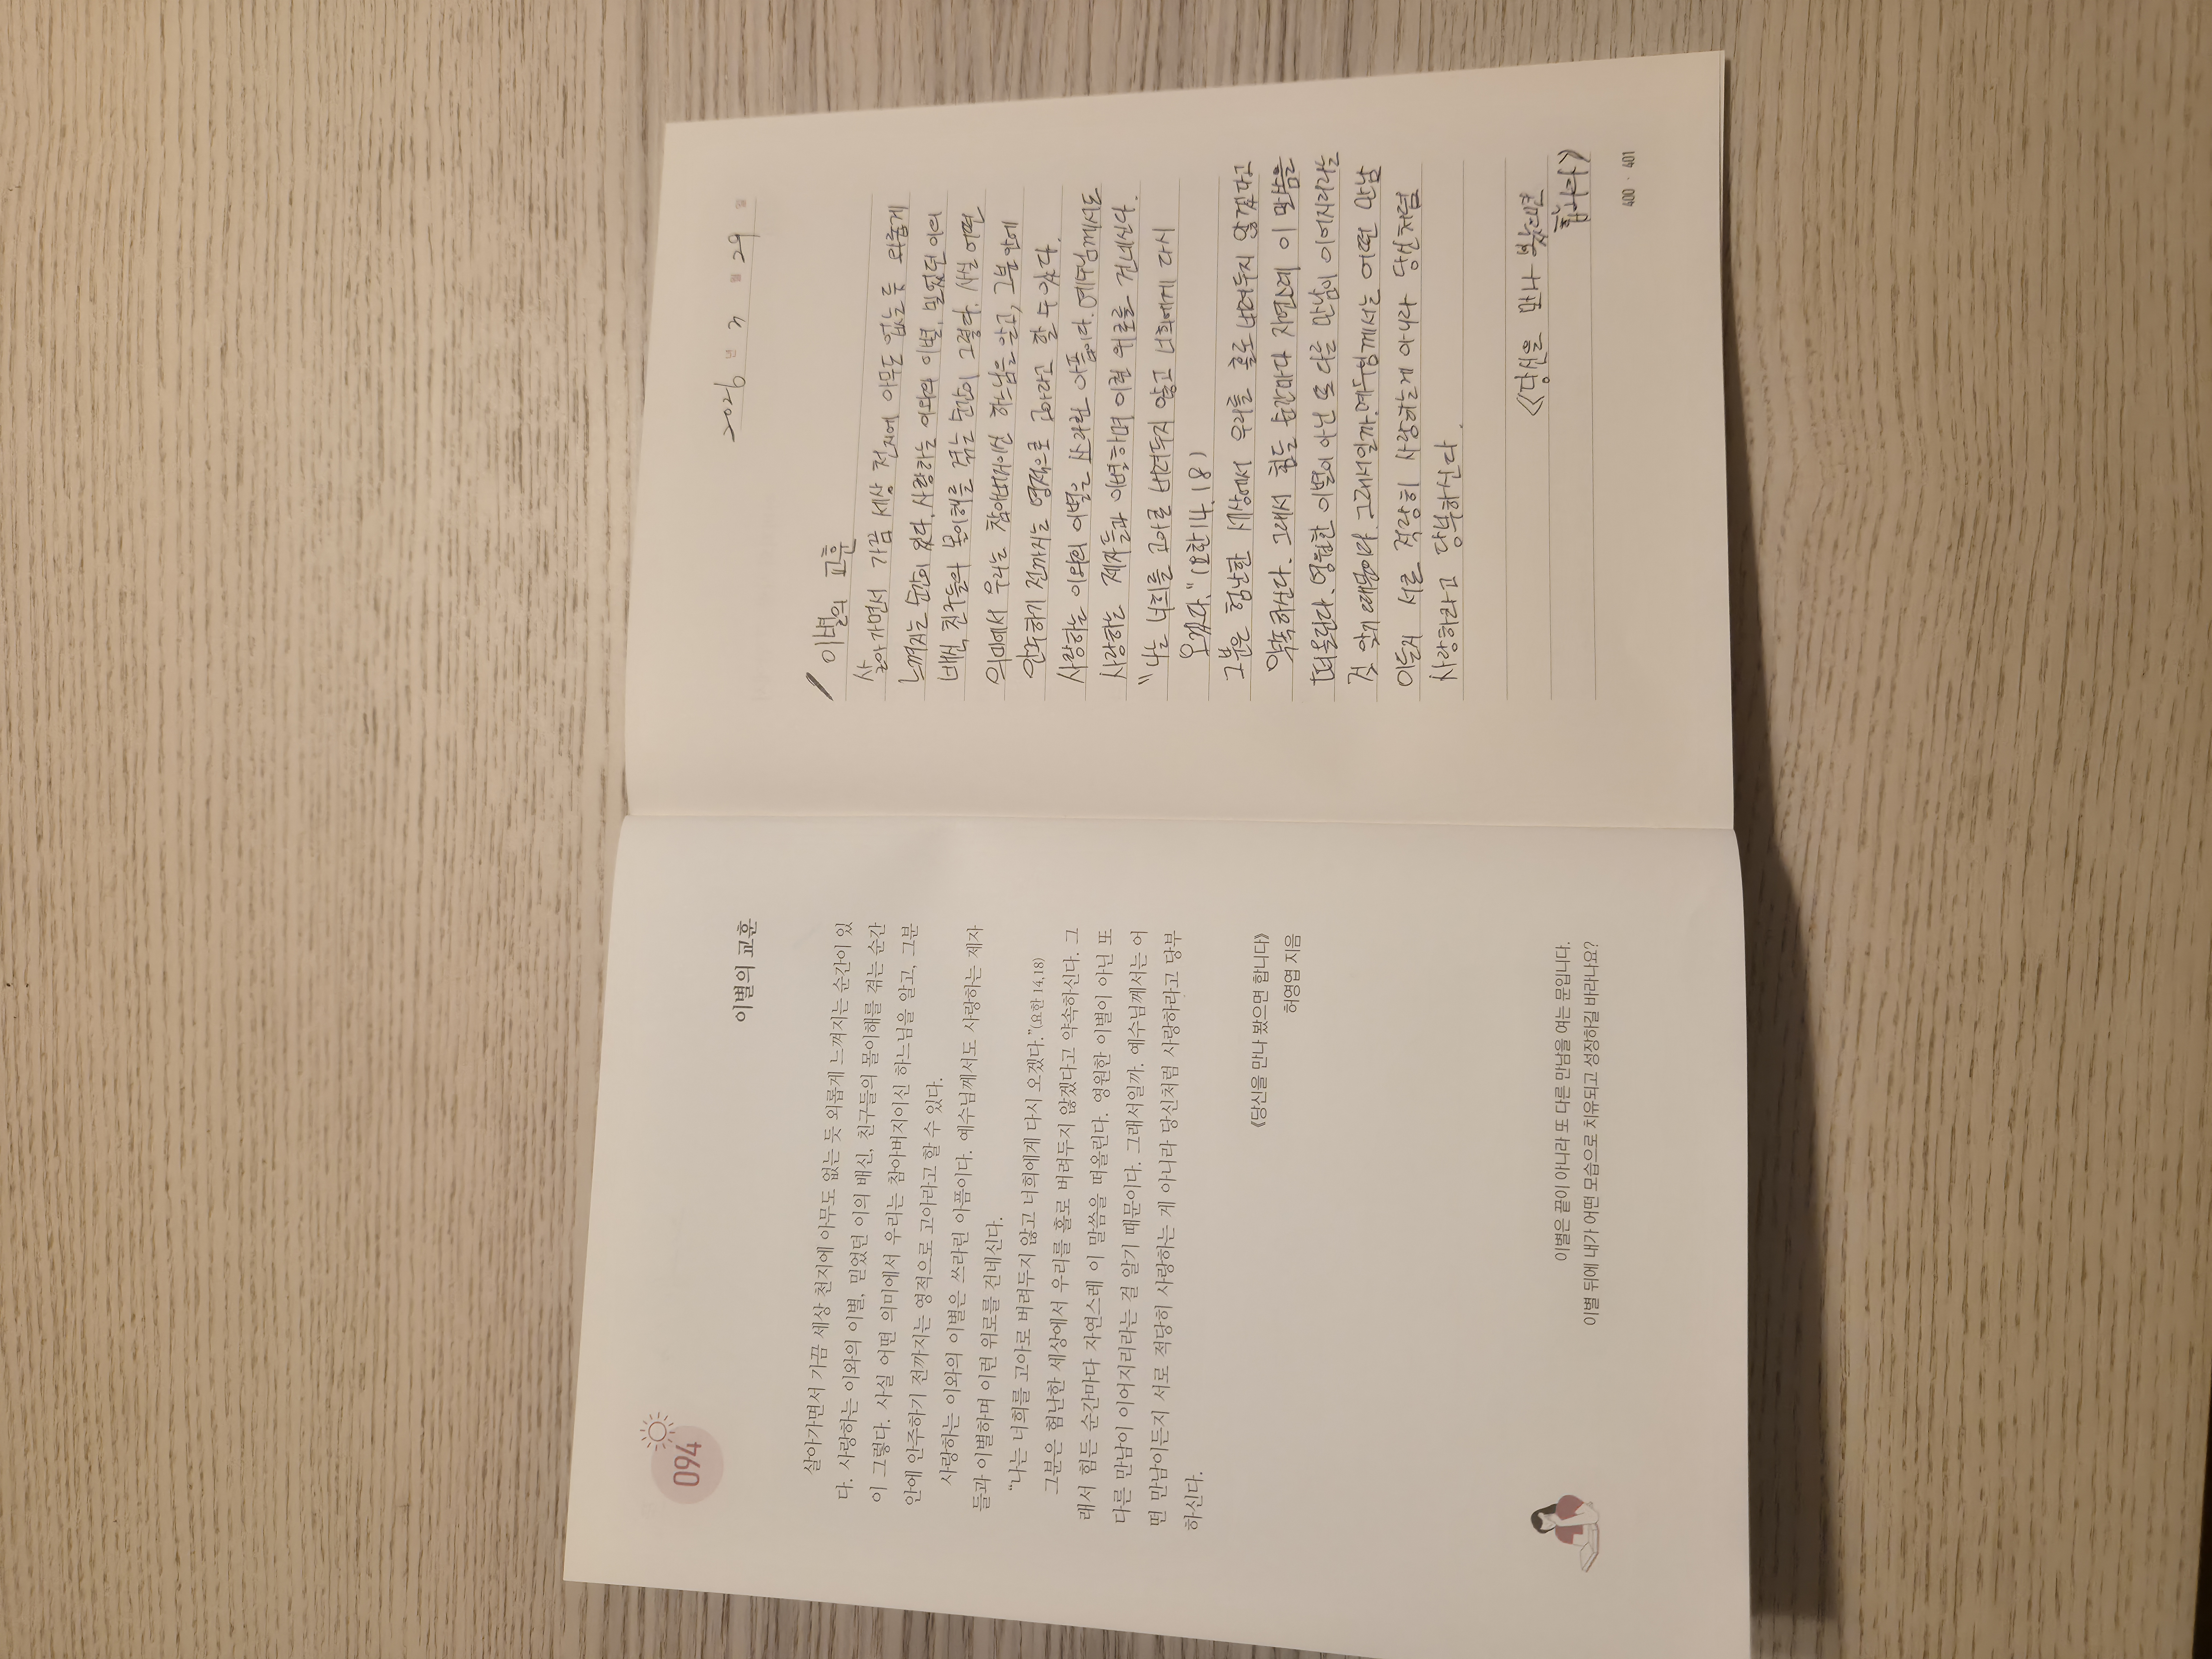 094
이별의 교훈
살아가면서 가끔 세상 천지에 아무도 없는 듯 외롭게 느껴지는 순간이 있
다. 사랑하는 이와의 이별, 믿었던 이의 배신, 친구들의 몰이해를 겪는 순간
이 그렇다. 사실 어떤 의미에서 우리는 참아버지이신 하느님을 알고, 그분
안에 안주하기 전까지는 영적으로 고아라고 할 수 있다.
사랑하는 이와의 이별은 쓰라린 아픔이다. 예수님께서도 사랑하는 제자
들과 이별하며 이런 위로를 건네신다.
“나는 너희를 고아로 버려두지 않고 너희에게 다시 오겠다.”(요한 14,18)
그분은 험난한 세상에서 우리를 홀로 버려두지 않겠다고 약속하신다. 그
래서 힘든 순간마다 자연스레 이 말씀을 떠올린다. 영원한 이별이 아닌 또
다른 만남이 이어지리라는 걸 알기 때문이다. 그래서일까. 예수님께서는 어
떤 만남이든지 서로 적당히 사랑하는 게 아니라 당신처럼 사랑하라고 당부
하신다.
《당신을 만나 봤으면 합니다》
허영엽 지음
이별은 끝이 아니라 또 다른 만남을 여는 문입니다.
이별 뒤에 내가 어떤 모습으로 치유되고 성장하길 바라나요?
2026 년 3 월 29 일
이별의 교훈
살아가면서 가끔 세상 천지에 아무도 없는 듯 외롭게
느껴지는 순간이 있다. 사랑하는 이와의 이별, 믿었던 이의
배신, 친구들의 몰이해를 겪는 순간이 그렇다. 사실 어떤
의미에서 우리는 참아버지이신 하느님을 알고, 그분 안에
안주하기 전까지는 영적으로 고아라고 할 수 있다.
사랑하는 이와의 이별은 쓰라린 아픔이다. 예수님께서도
사랑하는 제자들과 이별하며 이런 위로를 건네신다.
"나는 너희를 고아로 버려두지 않고 너희에게 다시
오겠다." (요한 14.18)
그분은 험난한 세상에서 우리를 홀로 버려두지 않겠다고
약속하신다. 그래서 힘든 순간마다 자연스레 이 말씀을
떠올린다. 영원한 이별이 아닌 또 다른 만남이 이어지리라는
것 알기 때문이다. 그래서일까. 예수님께서는 어떤 만남
이든지 서로 적당히 사랑하는게 아니라 당신처럼
사랑하라고 당부하신다.
《당신을 만나 봤으면
합니다》
400 · 401